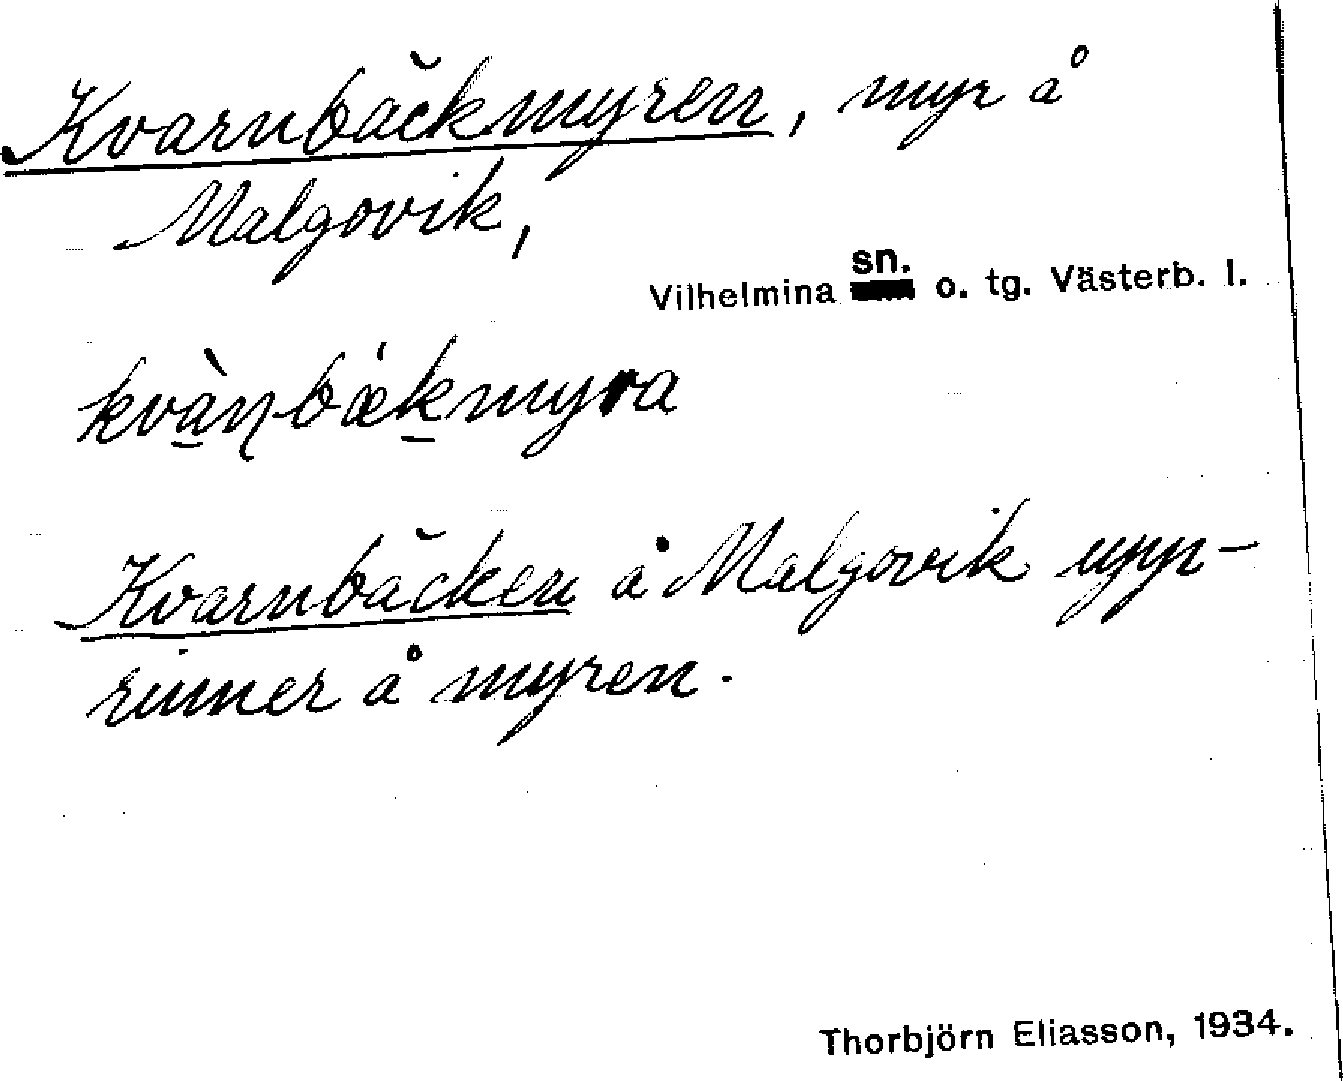 Kvarnbäckmyren, myr å
Malgovik,
Vilhelmina sn. o. tg. Västerb. l.
kvà̱ɳbǽk̠myra
Kvarnbäcken å Malgovik upp-
rinner å myren.
Thorbjörn Eliasson, 1934.